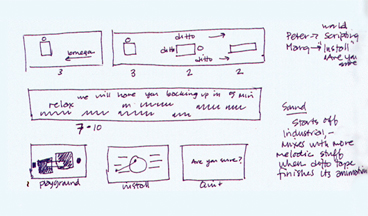 ditto
ditto
ditto
omega
3
3
2
2
world
Peter → Scripting
Install
Are you
sure
we will have you backing up in 5 min
relax
7-10
Sound
Starts off
industrial,
Mixes with more
melodic stuff
when ditto tape
finishes its animation
Are you sure?
playground
install
Quit